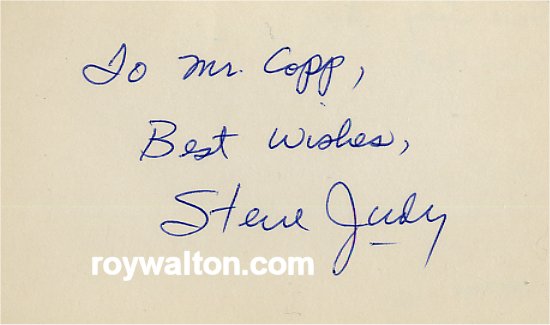 To Mr. Copp,
Best Wishes,
Steve Judy
roywalton.com